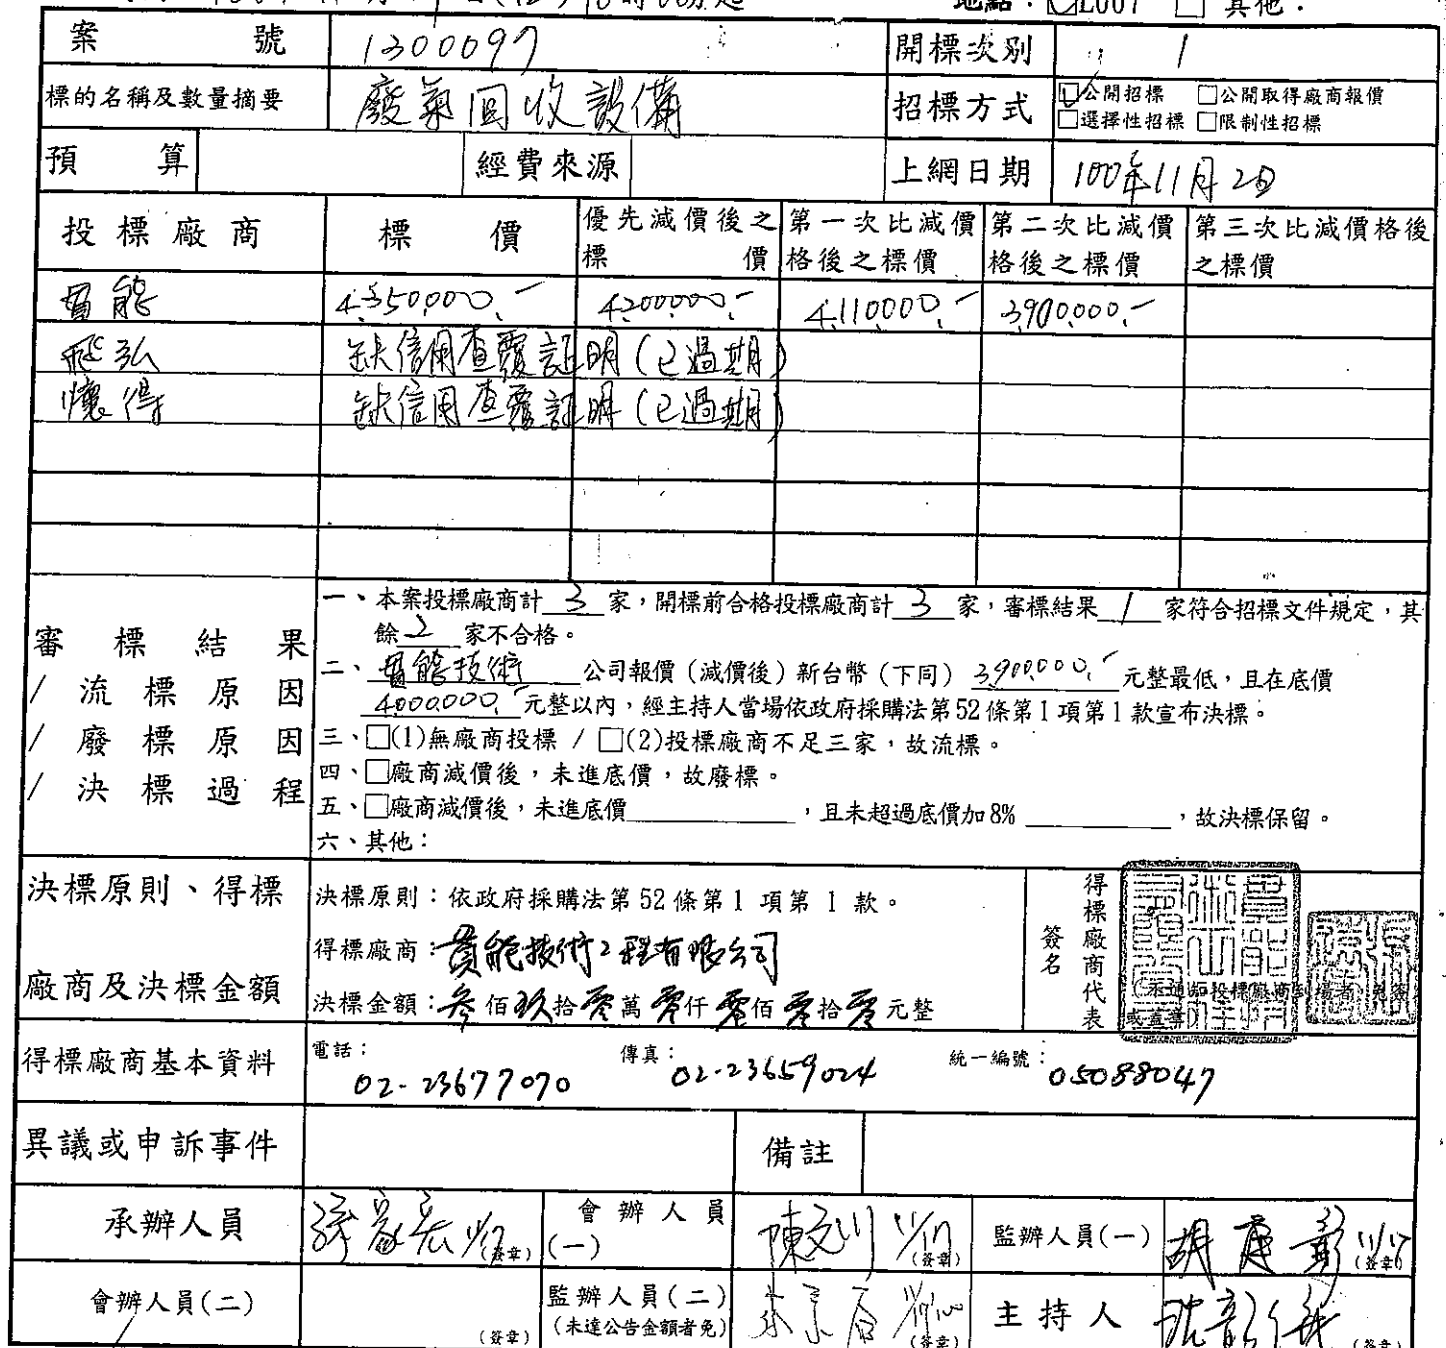 地點：☑E007 □ 其他：
案號 1300097 開標次別 1
標的名稱及數量摘要 廢氣回收設備 招標方式 ☑公開招標 □公開取得廠商報價
□選擇性招標 □限制性招標
預算 經費來源 上網日期 100年11月2日
投標廠商 標價 優先減價後之標價 第一次比減價格後之標價 第二次比減價格後之標價 第三次比減價格後之標價
貫能 4,350,000.- 4,200,000.- 4,110,000.- 3,900,000.-
飛弘 缺信用查覆証明(已過期)
懷得 缺信用查覆証明(已過期)
審標結果/流標原因/廢標原因/決標過程
一、本案投標廠商計 3 家，開標前合格投標廠商計 3 家，審標結果 1 家符合招標文件規定，其
餘 2 家不合格。
二、貫能技術 公司報價（減價後）新台幣（下同） 3,900,000.- 元整最低，且在底價
4,000,000.- 元整以內，經主持人當場依政府採購法第52條第1項第1款宣布決標。
三、□(1)無廠商投標 / □(2)投標廠商不足三家，故流標。
四、□廠商減價後，未進底價，故廢標。
五、□廠商減價後，未進底價 ，且未超過底價加8% ，故決標保留。
六、其他：
決標原則、得標廠商及決標金額
決標原則：依政府採購法第52條第1 項第 1 款。
得標廠商：貫能技術工程有限公司
決標金額：參佰玖拾零萬零仟零佰零拾零元整
得標廠商代表簽名
得標廠商基本資料 電話：02-23677070 傳真：02-23659024 統一編號：05088047
異議或申訴事件 備註
承辦人員 (簽章) 會辦人員(一) 陳文川 11/17 (簽章) 監辦人員(一) 11/17 (簽章)
會辦人員(二) (簽章) 監辦人員(二) (未達公告金額者免) (簽章) 主持人 (簽章)